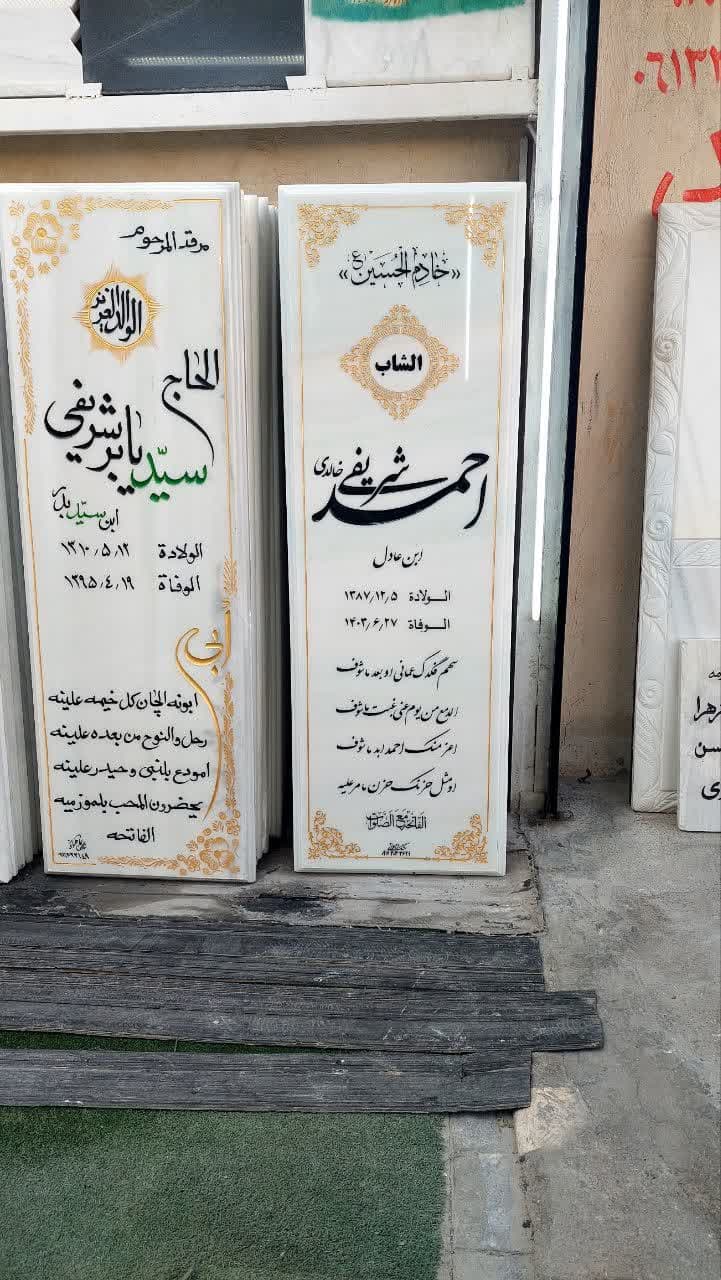 مرقد المرحوم
الوالد العزيز
الحاج
سيّد يابر شريفي
ابن سيّد بدر
الولادة ١٣١٠٫٥٫١٢
الوفاة ١٣٩٥٫٤٫١٩
ابونه الچان كل خيمه علينه
رحل والنوح من بعده علينه
امودع يلنبي وحيدر علينه
يحضرون المحب بلموزميه
الفاتحه
«خادم الحسين ع»
الشاب
احمد شريفي خالدي
ابن عادل
الولادة ١٣٨٧٫١٢٫٥
الوفاة ١٤٠٣٫٦٫٢٧
او بعد ماشوف
الدمع من يوم عني غبت ماشوف
اعز منك احمد ابد ماشوف
او مثل حزنك حزن مامر عليه
الفاتحة مع الصلوات
زهرا